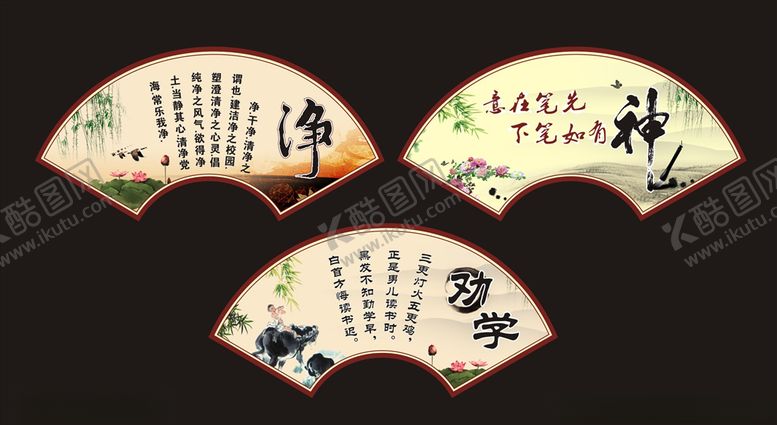 净
净·干净·清净·之
谓也·建洁净之校园·
塑澄清净之心灵倡
纯净之风气·欲得净
土·当静其心·清净党
海·常乐我净·
意在笔先
下笔如有
神
劝学
三更灯火五更鸡，
正是男儿读书时。
黑发不知勤学早，
白首方悔读书迟。
酷图网
www.ikutu.com